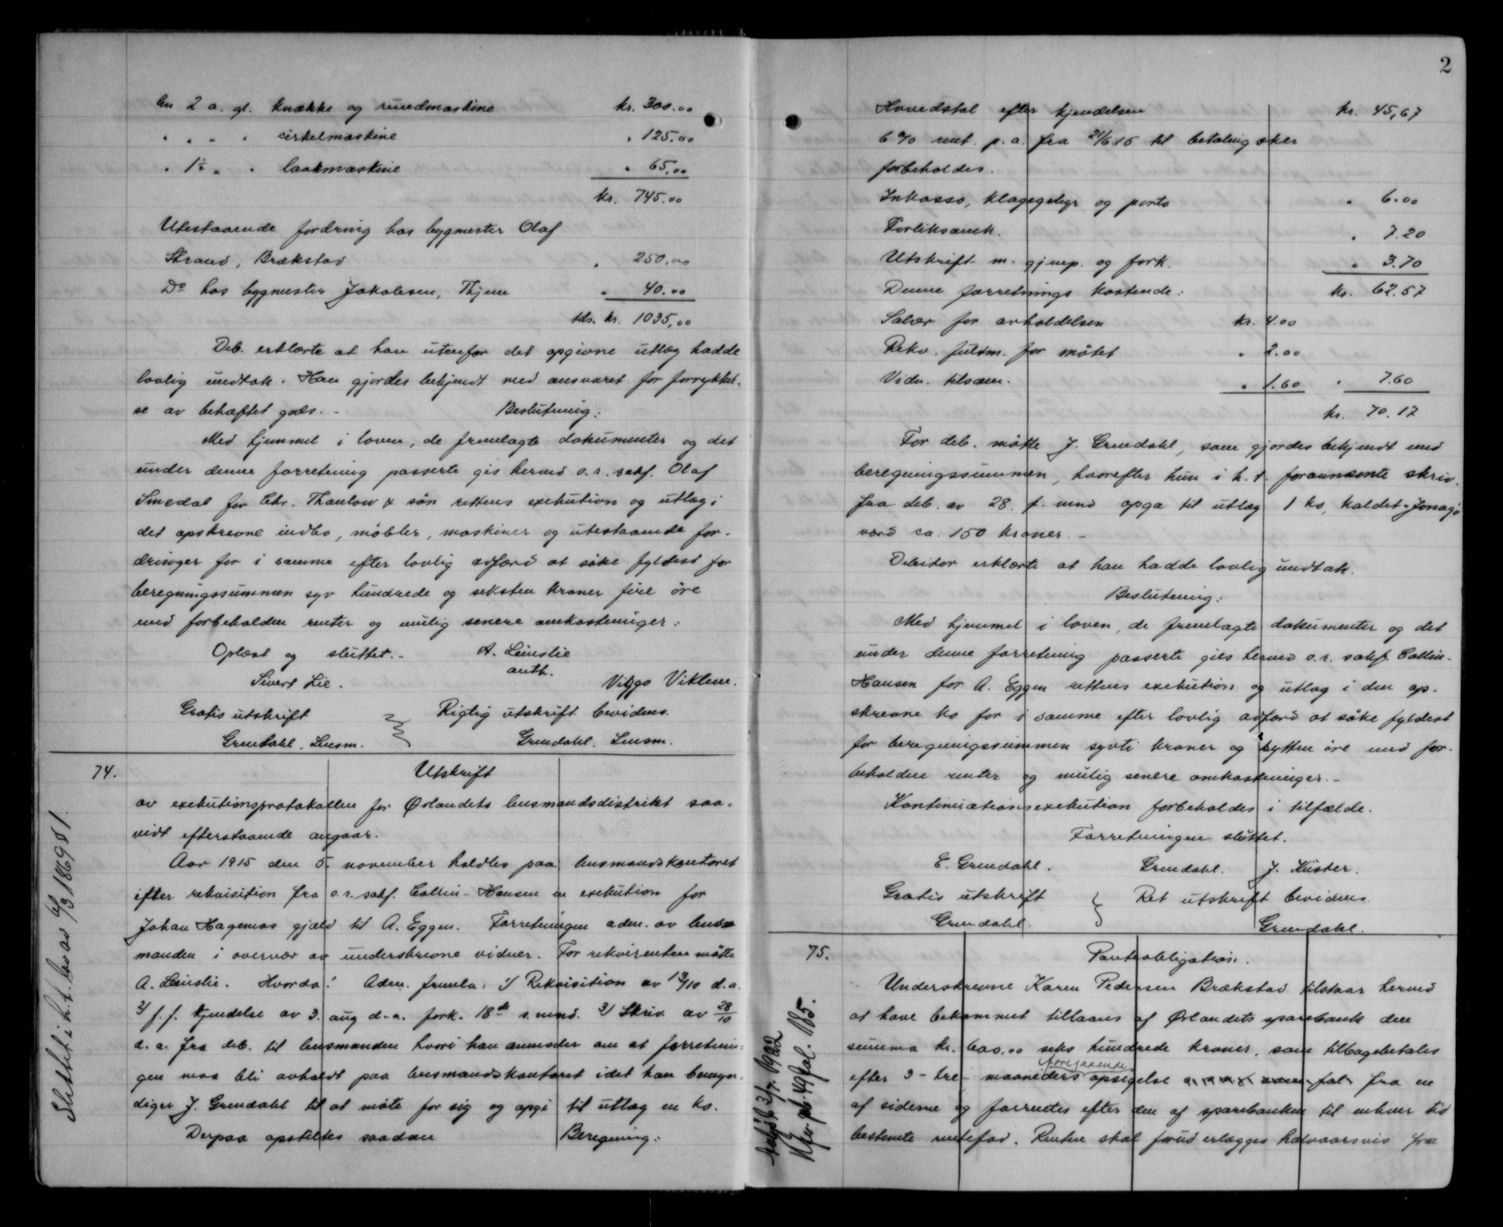 En 2 a. gl. knække og rundmaskine kr. 300.00
" " " " cirkelmaskine " 125.00
" 1 " " laakmaskine " 65.00
kr. 745.00
Utestaaende fordring hos bygmester Olaf
Strand, Brækstad " 250.00
Do hos bygmester Jakobsen, Thjem " 40.00
tils. kr. 1035,00
Deb. erklærte at han utenfor det opgivne utlæg hadde
lovlig undtak. Han gjordes bekjendt med ansvaret for forrykkel-
se av behæftet gods. - Beslutning:
Med hjemmel i loven, de fremlagte dokumenter og det
under denne forretning passerte gis herved o.r. sakf. Olaf
Smedal for Chr. Thaulow & søn rettens exekution og utlæg i
det opskrevne indbo, møbler, maskiner og utestaaende for-
dringer for i samme efter lovlig adfærd at søke fyldest for
beregningssummen syv hundrede og seksten kroner fire øre
med forbeholdne renter og mulig senere omkostninger:
Oplæst og sluttet. - A. Leinslie
auth.
Sivert Lie. Viggo Viktem.
Gratis utskrift Rigtig utskrift bevidnes.
Grendahl, Lensm. Grendahl. Lensm.
74. Utskrift
av exekutionsprotokollen for Ørlandets lensmandsdistrikt saa-
vidt efterstaaende angaar.
Aar 1915 den 5. november holdtes paa lensmandskontoret
efter rekvisition fra o.r. sakf. Collin-Hansen en exekution for
Johan Hagemos gjæld til A. Eggen. Forretningen adm. av lens-
manden i overvær av underskrevne vidner. For rekvirenten møtte
A. Leinslie. Hvorda! Adm. fremla: 1/ Rekvisition av 13/10 d.a.
2/ f.f. kjendelse av 3. aug d.a. fork. 18de s. mnd. 3/ Skriv. av 28/10
d.a. fra deb. til lensmanden hvori han anmoder om at forretnin-
gen maa bli avholdt paa lensmandskontoret idet han bemyn-
diger J. Grendahl til at møte for sig og opgi til utlæg en ko.
Derpaa opstilles saadan Beregning:
Slettet i h.t. lov av 6/3 1869 § 1.
2
Hovedstol efter kjendelsen kr. 45,67
6 % rent. p.a. fra 21/6 15 til betaling sker
forbeholdes.
Inkasso, klagegebyr og porto " 6.00
Forliksomk. " 7.20
Utskrift m. gjenp. og fork. " 3.70
Denne forretnings kostende: kr. 62.57
Salær for avholdelsen kr. 4.00
Rekv. fuldm. for møtet " 2.00
Vidn. tilsam. " 1.60 " 7.60
kr. 70.17
For deb. møtte J. Grendahl, som gjordes bekjendt med
beregningssummen, hvorefter hun i h. t. forannævnte skriv.
fra deb. av 28. f. mnd opga til utlæg 1 ko, kaldet
værd ca. 150 kroner. -
Debitor erklærte at han hadde lovlig undtak.
Beslutning:
Med hjemmel i loven, de fremlagte dokumenter og det
under denne forretning passerte gies herved o.r. sakf. Collin-
Hansen for A. Eggen rettens exekution og utlæg i den op-
skrevne ko for i samme efter lovlig adfærd at søke fyldest
for beregningssummen sytti kroner og sytten øre med for-
beholdne renter og mulig senere omkostninger. -
Kontinuationsexekution forbeholdes i tilfælde.
Forretningen sluttet.
E. Grendahl. Grendahl. J. Küster.
Gratis utskrift Ret utskrift bevidnes
Grendahl. Grendahl.
75. Panteobligation.
Underskrevne Karen Pedersen Brækstad tilstaar herved
at have bekommet tillaans af Ørlandets sparebank den
summa kr. 600,00 seks hundrede kroner, som tilbagebetales
efter 3 - tre maaneders foregaaende opsigelse fra en
af siderne og forrentes efter den af sparebanken til enhver tid
bestemte rentefod. Renten skal forud erlægges halvaarsvis
1922